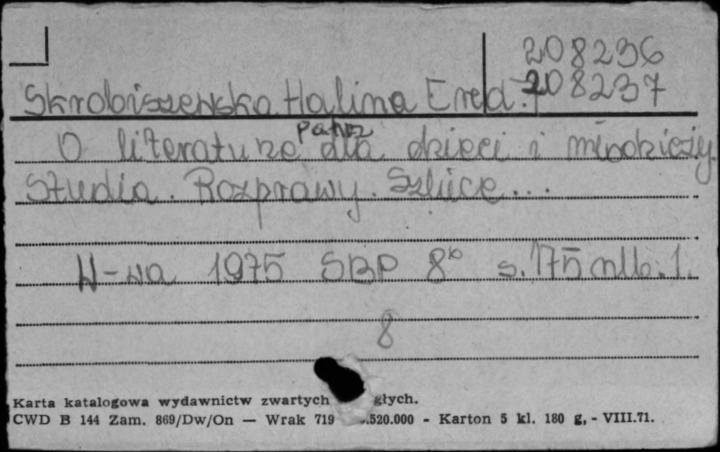 208236
Skrobiszewska Halina [red.] 208237
patrz
O literaturze dla dzieci i młodzieży.
Studia. Rozprawy. Szkice...
W-wa 1975 SBP 8° s. 175 nlb. 1.
8
Karta katalogowa wydawnictw zwartych głych.
CWD B 144 Zam. 869/Dw/On — Wrak 719 .520.000 - Karton 5 kl. 180 g, - VIII.71.